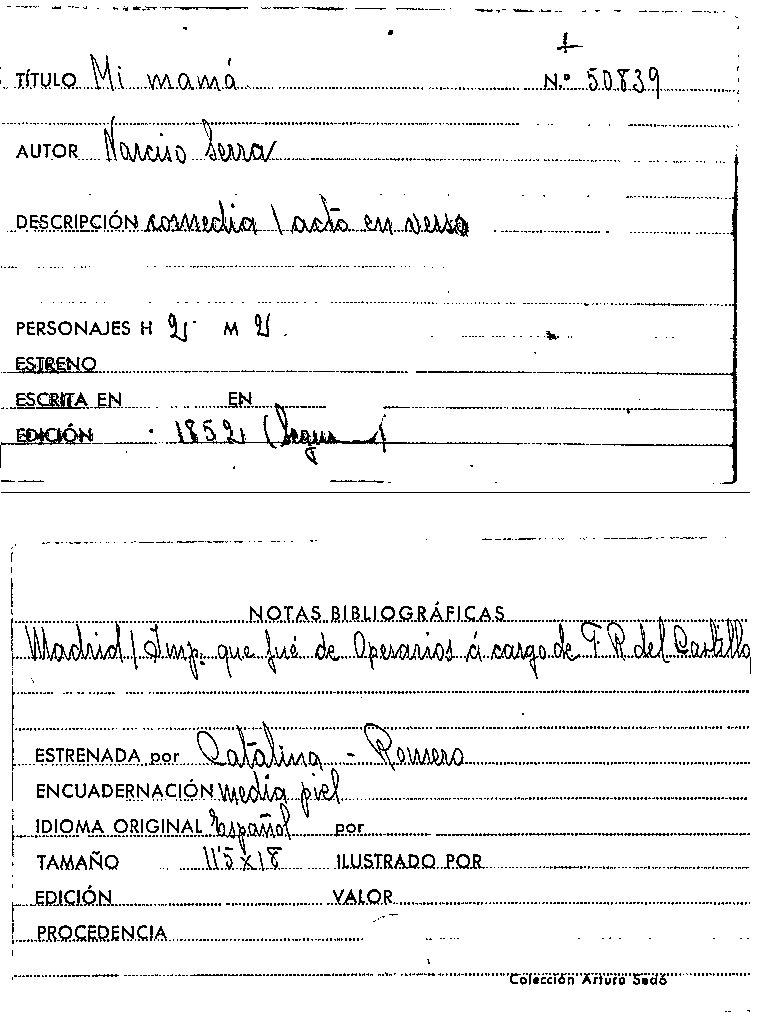 TÍTULO Mi mamá N.º 50839
AUTOR Narciso Serra
DESCRIPCIÓN comedia 1 acto en verso
PERSONAJES H 2 M 2
ESTRENO
ESCRITA EN EN
EDICIÓN 1852 (Segunda)
NOTAS BIBLIOGRÁFICAS
Madrid / Imp. que fué de Operarios á cargo de F R del Castillo
ESTRENADA por Catalina - Romero
ENCUADERNACIÓN media piel
IDIOMA ORIGINAL Español por
TAMAÑO 11'5 x 18 ILUSTRADO POR
EDICIÓN VALOR
PROCEDENCIA
Colección Arturo Sedó